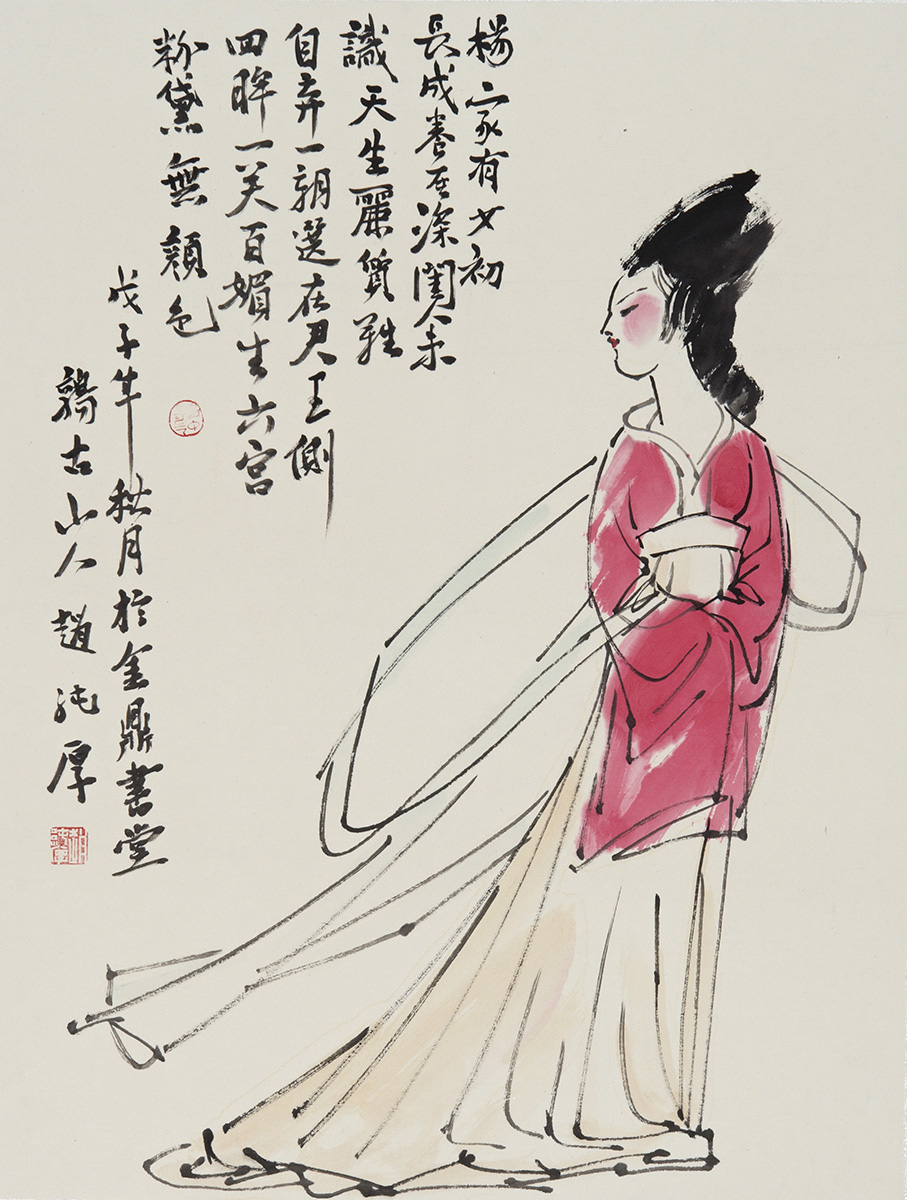 楊家有女初
長成養在深閨人未
識天生麗質難
自弃一朝選在君王側
回眸一笑百媚生六宮
粉黛無顏色
戊子年秋月於金鼎書堂
古山人趙純厚